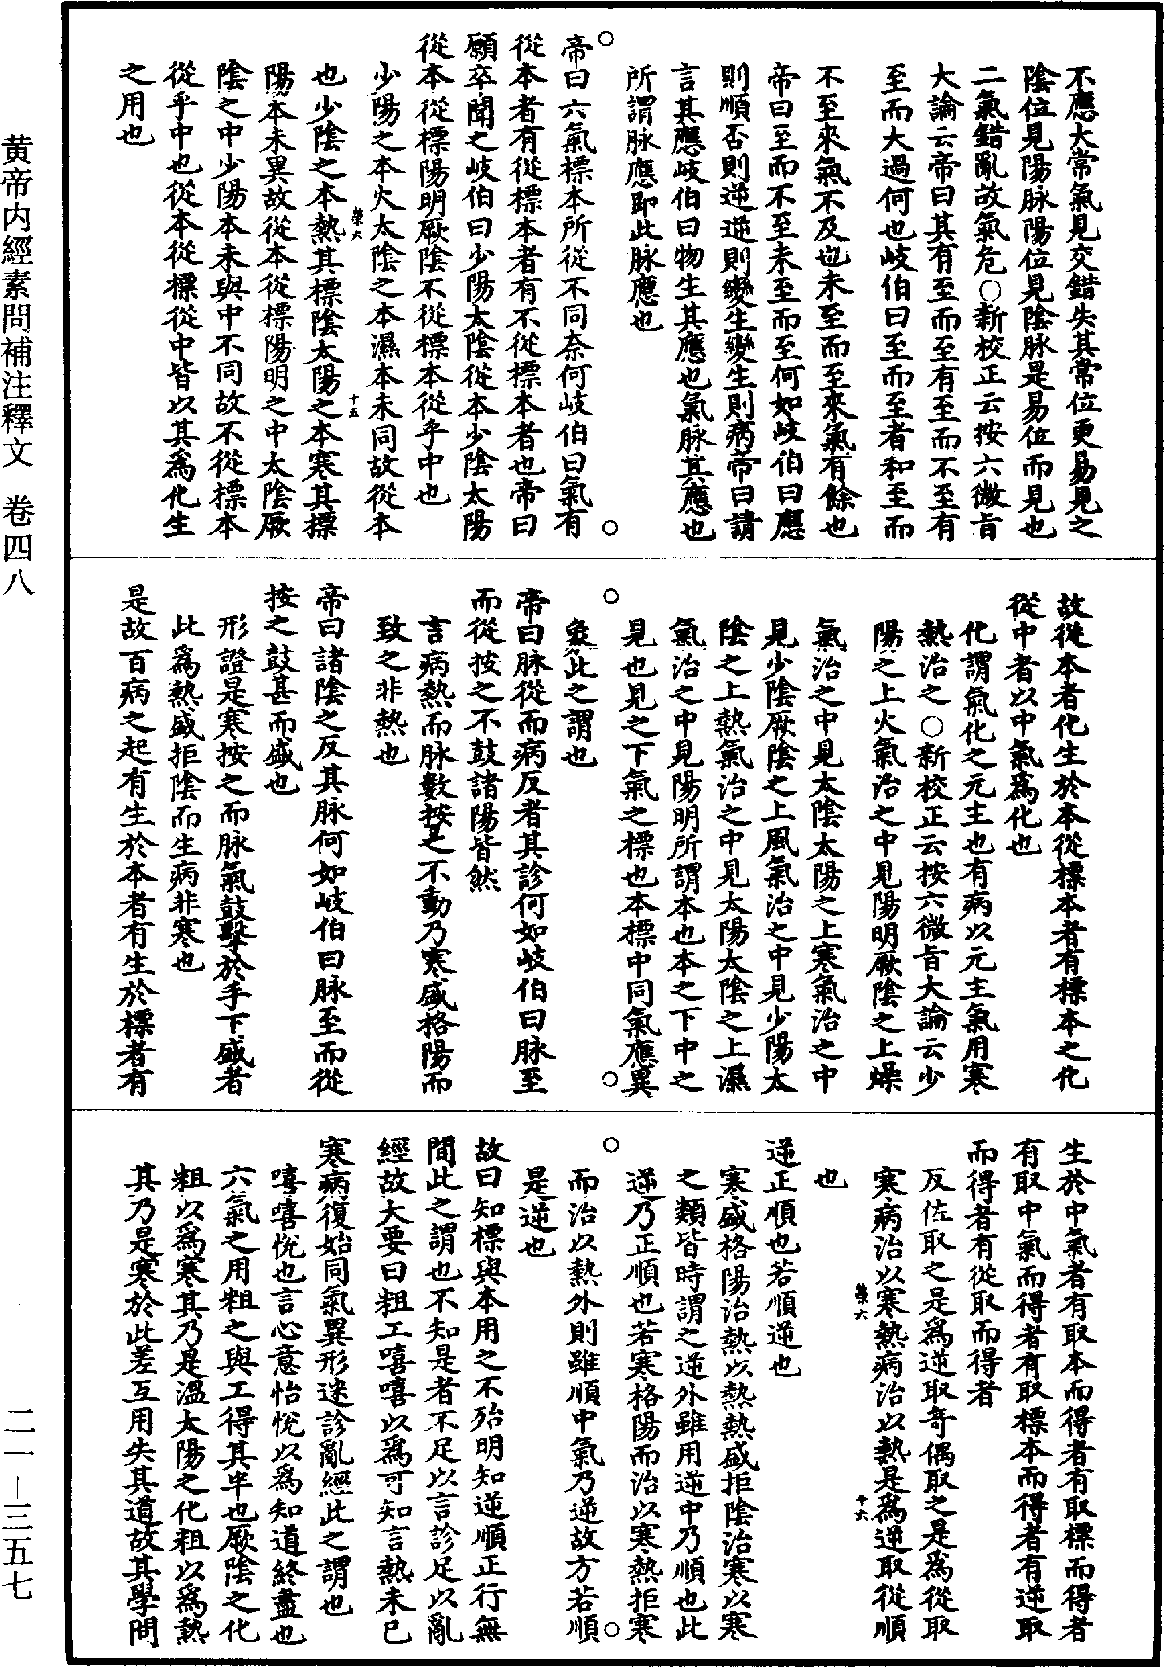 不應大常氣見交錯失其常位更易見之
陰位見陽脉陽位見陰脉是易位而見也
二氣錯亂故氣危○新校正云按六微旨
大論云帝曰其有至而至有至而不至有
至而大過何也岐伯曰至而至者和至而
不至來氣不及也未至而至來氣有餘也
帝曰至而不至未至而至何如岐伯曰應
則順否則逆逆則變生變生則病帝曰請
言其應岐伯曰物生其應也氣脉其應也
所謂脉應即此脉應也
帝曰六氣標本所從不同奈何岐伯曰氣有
從本者有從標本者有不從標本者也帝曰
願卒聞之岐伯曰少陽太陰從本少陰太陽
從本從標陽明厥陰不從標本從乎中也
少陽之本火太陰之本濕本末同故從本
也少陰之本熱其標陰太陽之本寒其標
陽本末異故從本從標陽明之中太陰厥
陰之中少陽本末與中不同故不從標本
從乎中也從本從標從中皆以其為化生
之用也
故從本者化生於本從標本者有標本之化
從中者以中氣為化也
化謂氣化之元主也有病以元主氣用寒
熱治之○新校正云按六微旨大論云少
陽之上火氣治之中見陽明厥陰之上燥
氣治之中見太陰太陽之上寒氣治之中
見少陰厥陰之上風氣治之中見少陽太
陰之上熱氣治之中見太陽太陰之上濕
氣治之中見陽明所謂本也本之下中之
見也見之下氣之標也本標中同氣應異
象此之謂也
帝曰脉從而病反者其診何如岐伯曰脉至
而從按之不鼓諸陽皆然
言病熱而脉數按之不動乃寒盛格陽而
致之非熱也
帝曰諸陰之反其脉何如岐伯曰脉至而從
按之鼓甚而盛也
形證是寒按之而脉氣鼓擊於手下盛者
此為熱盛拒陰而生病非寒也
是故百病之起有生於本者有生於標者有
生於中氣者有取本而得者有取標而得者
有取中氣而得者有取標本而得者有逆取
而得者有從取而得者
反佐取之是為逆取奇偶取之是為從取
寒病治以寒熱病治以熱是為逆取從順
也
逆正順也若順逆也
寒盛格陽治熱以熱熱盛拒陰治寒以寒
之類皆時謂之逆外雖用逆中乃順也此
逆乃正順也若寒格陽而治以寒熱拒寒
而治以熱外則雖順中氣乃逆故方若順
是逆也
故曰知標與本用之不殆明知逆順正行無
間此之謂也不知是者不足以言診足以亂
經故大要曰粗工嘻嘻以為可知言熱未已
寒病復始同氣異形迷診亂經此之謂也
嘻嘻悅也言心意怡悅以為知道終盡也
六氣之用粗之與工得其半也厥陰之化
粗以為寒其乃是溫太陽之化粗以為熱
其乃是寒於此差互用失其道故其學問
黃帝内經素問補注釋文 卷四八
二一—三五七